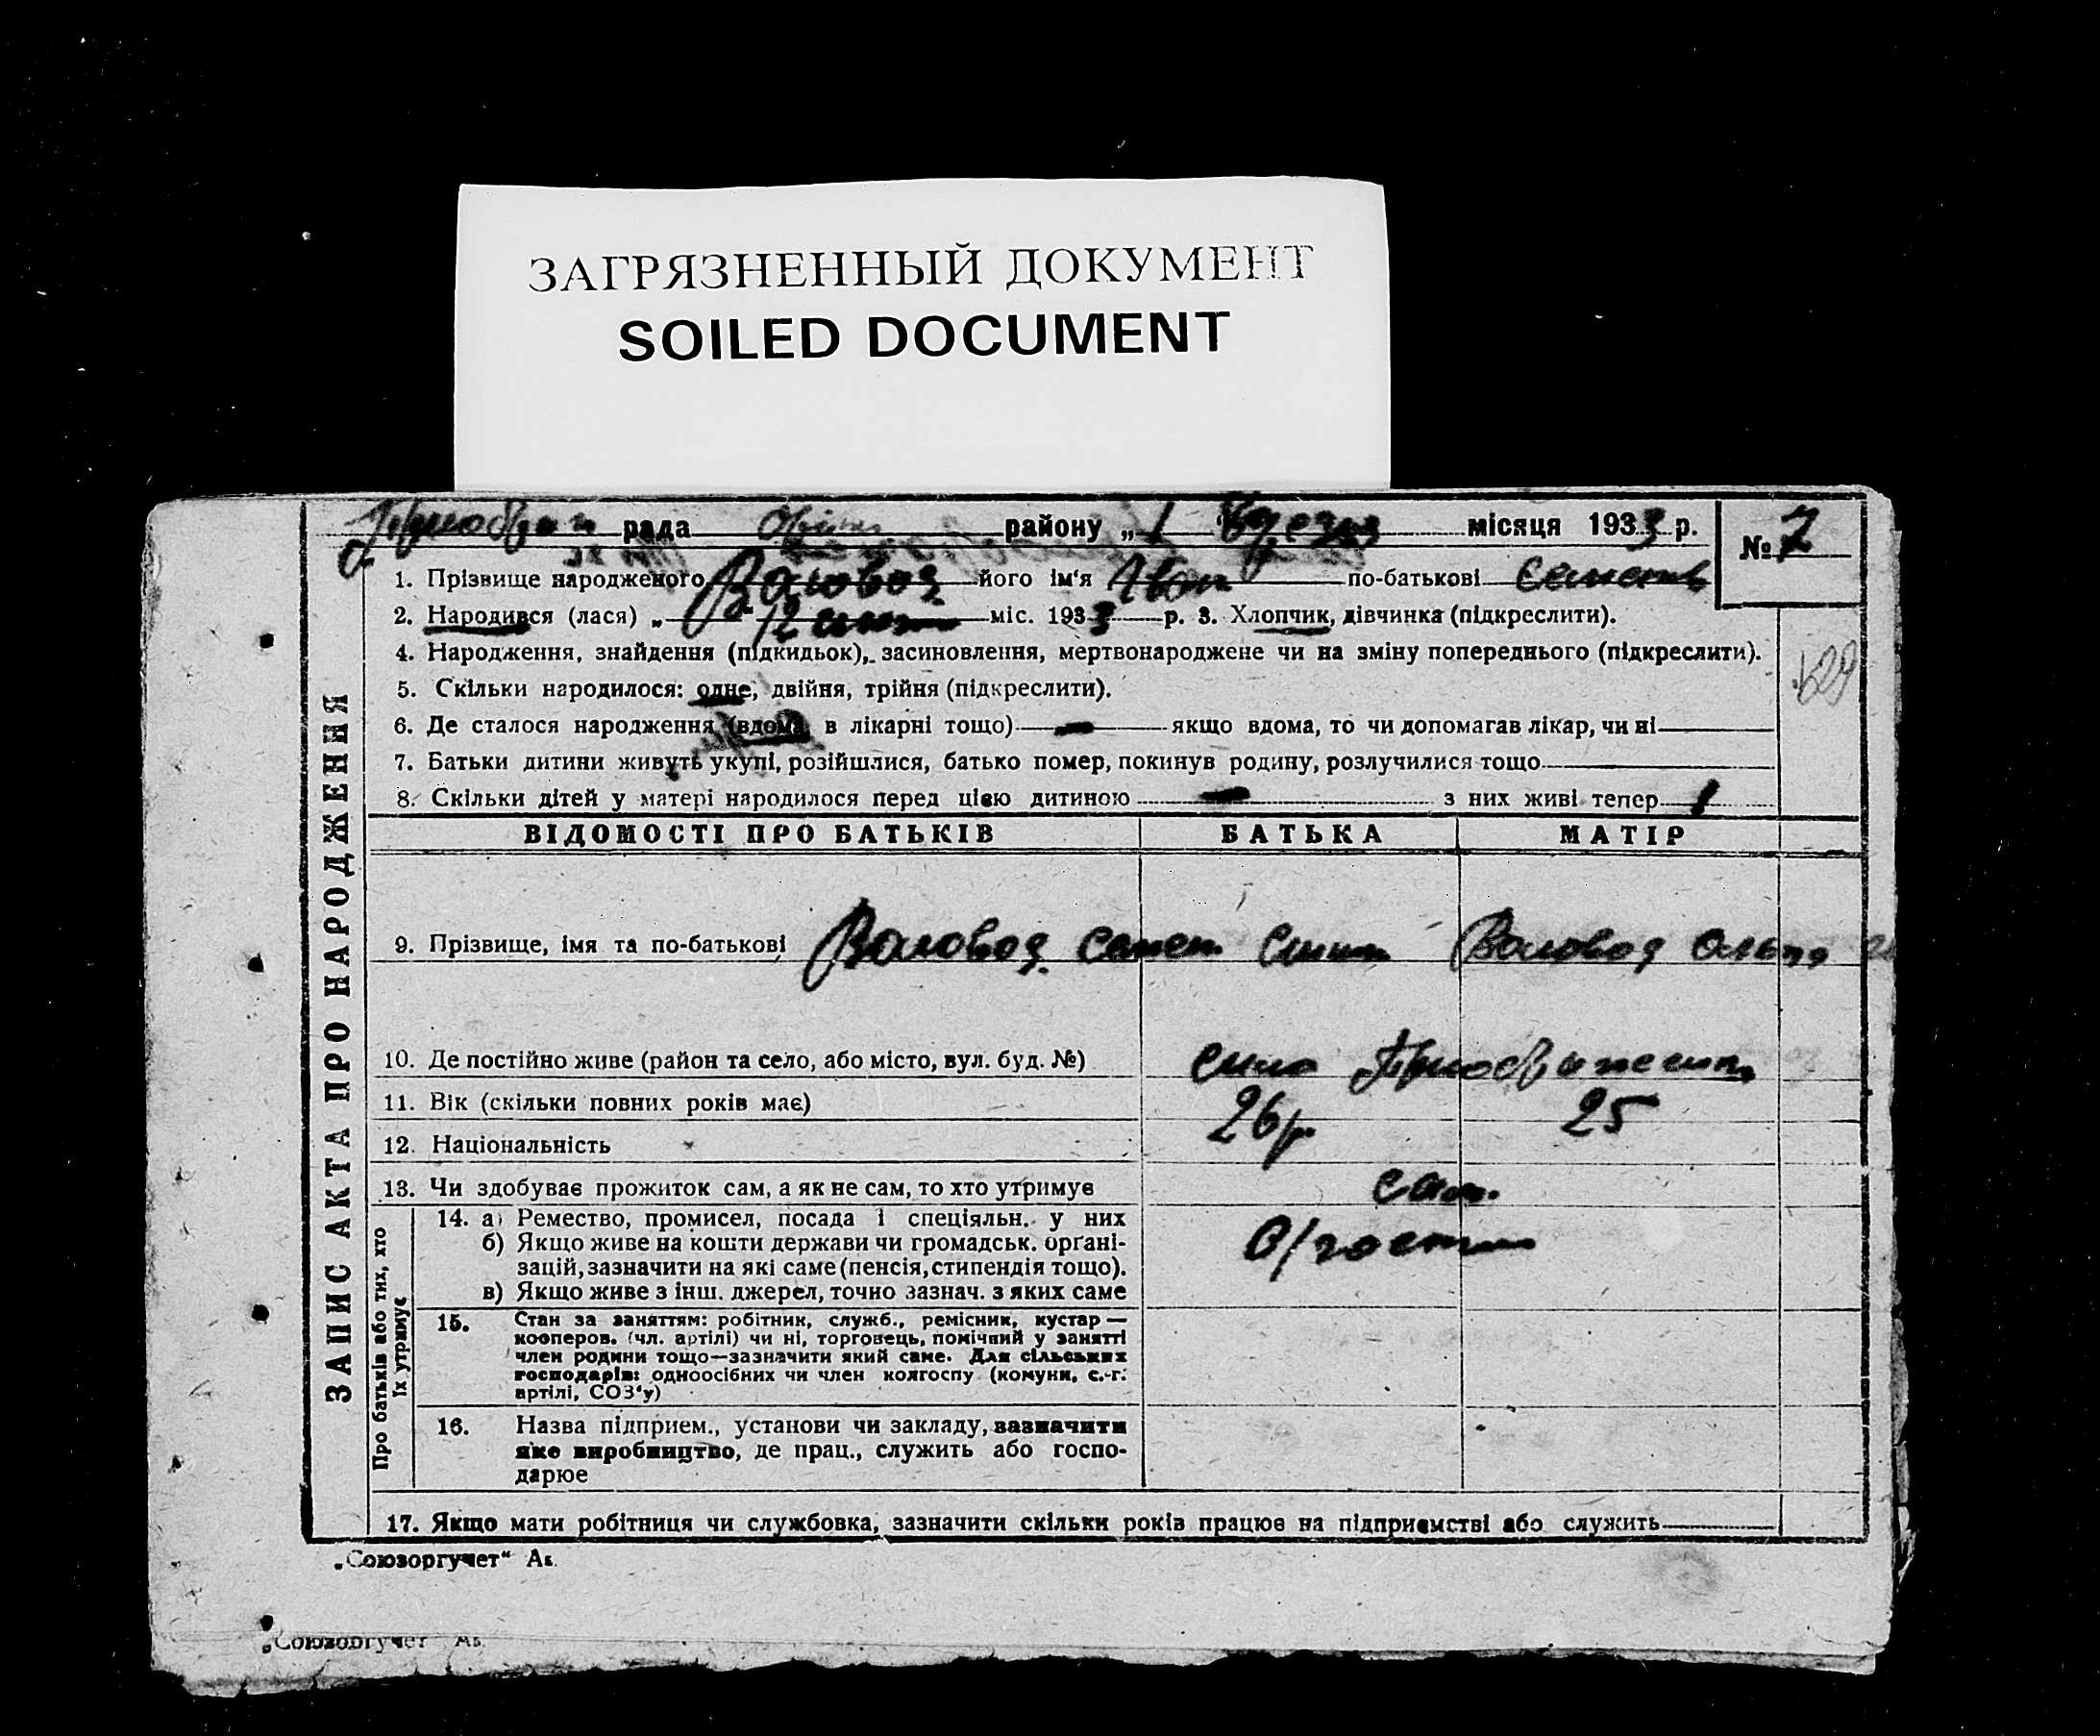 ЗАГРЯЗНЕННЫЙ ДОКУМЕНТ
SOILED DOCUMENT
рада району „1 місяця 1933 р.
№ 7
1. Прізвище народженого Воловод його ім'я Іван по-батькові
2. Народився (лася) „ 12 міс. 1933 р. 3. Хлопчик, дівчинка (підкреслити).
4. Народження, знайдення (підкидьок), засиновлення, мертвонароджене чи на зміну попереднього (підкреслити).
5. Скільки народилося: одне, двійня, трійня (підкреслити).
6. Де сталося народження (вдома, в лікарні тощо) — якщо вдома, то чи допомагав лікар, чи ні
7. Батьки дитини живуть укупі, розійшлися, батько помер, покинув родину, розлучилися тощо
8. Скільки дітей у матері народилося перед цією дитиною — з них живі тепер 1
ЗАПИС АКТА ПРО НАРОДЖЕННЯ
ВІДОМОСТІ ПРО БАТЬКІВ БАТЬКА МАТІР
9. Прізвище, імя та по-батькові Воловод Семен Воловод Ольга
10. Де постійно живе (район та село, або місто, вул. буд. №)
11. Вік (скільки повних років має) 26 р. 25
12. Національність
13. Чи здобуває прожиток сам, а як не сам, то хто утримує сам.
Про батьків або тих, хто
їх утримує
14. а) Ремество, промисел, посада і спеціяльн. у них
б) Якщо живе на кошти держави чи громадськ. органі-
зацій, зазначити на які саме (пенсія, стипендія тощо).
в) Якщо живе з інш. джерел, точно зазнач. з яких саме
15. Стан за заняттям: робітник, служб., ремісник, кустар —
кооперов. (чл. артілі) чи ні, торговець, помічний у занятті
член родини тощо—зазначити який саме. Для сільських
господарів: одноосібних чи член колгоспу (комуни, с.-г.
артілі, СОЗ'у)
16. Назва підприєм., установи чи закладу, зазначити
яке виробництво, де прац., служить або госпо-
дарює
17. Якщо мати робітниця чи службовка, зазначити скільки років працює на підприємстві або служить
„Союзоргучет“
„Союзоргучет